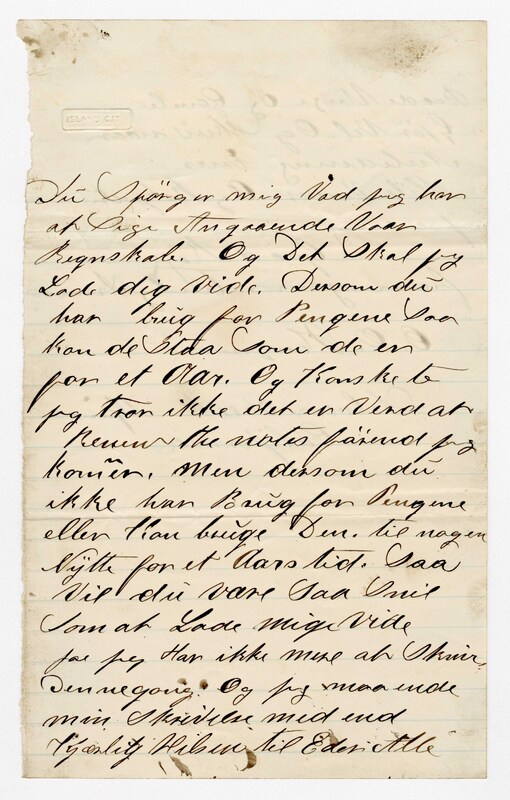 Du Spörger mig Vad jeg har
at Sige Angaaende Vaar
Regnskab. Og Det Skal jeg
Lade dig vide. Dersom dü
har brüg for Pengene Saa
kan de Staa Som de er
for et Aar. Og Kanske to
jeg tror ikke det er Verd at
Renew the notes förend jeg
komēr. Men dersom dü
ikke har Brug for Pengene
eller Kan brüge Den. til nogen
Nÿtte for et Aars tid. Saa
Vil dü være Saa Snil
Som at Lade mige Vide
jeg Har ikke mere at Skriv.
Dennegang. Og jeg maa ende
min Skrivelse med end
Kjærlig Hilsen til Eder Alle